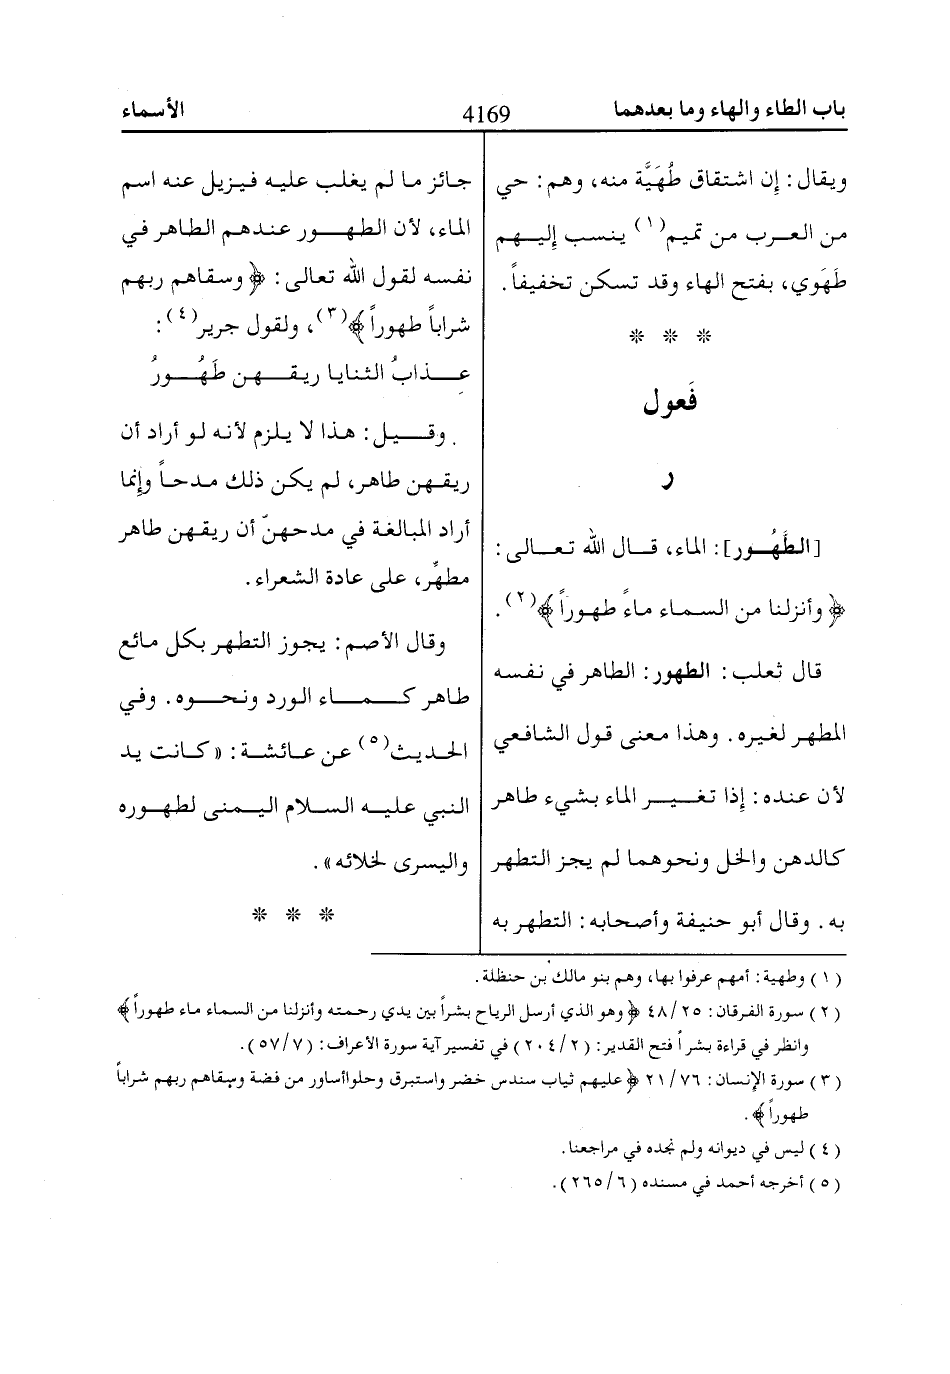 باب الطاء والهاء وما بعدهما 4169 الأسماء
ويقال: إن اشتقاق طُهَيَّة منه، وهم: حي
من العرب من تميم(١) ينسب إليهم
طهَوي، بفتح الهاء وقد تسكن تخفيفاً.
* * *
فَعول
ر
[الطَّهُور]: الماء، قال الله تعالى:
﴿ وأنزلنا من السماء ماءً طهوراً ﴾(٢).
قال ثعلب: الطهور: الطاهر في نفسه
المطهر لغيره. وهذا معنى قول الشافعي
لأن عنده: إذا تغير الماء بشيء طاهر
كالدهن والخل ونحوهما لم يجز التطهر
به. وقال أبو حنيفة وأصحابه: التطهر به
جائز ما لم يغلب عليه فيزيل عنه اسم
الماء، لأن الطهور عندهم الطاهر في
نفسه لقول الله تعالى: ﴿ وسقاهم ربهم
شراباً طهوراً ﴾(٣)، ولقول جرير(٤):
عِذابُ الثنايا ريقهن طَهُورُ
وقيل: هذا لا يلزم لأنه لو أراد أن
ريقهن طاهر، لم يكن ذلك مدحاً وإنما
أراد المبالغة في مدحهنّ أن ريقهن طاهر
مطهِّر، على عادة الشعراء.
وقال الأصم: يجوز التطهر بكل مائع
طاهر كماء الورد ونحوه. وفي
الحديث(٥) عن عائشة: « كانت يد
النبي عليه السلام اليمنى لطهوره
واليسرى لخلائه ».
* * *
(١) وطهية: أمهم عرفوا بها، وهم بنو مالك بن حنظلة.
(٢) سورة الفرقان: ٤٨/٢٥ ﴿ وهو الذي أرسل الرياح بشراً بين يدي رحمته وأنزلنا من السماء ماء طهوراً ﴾
وانظر في قراءة بشراً فتح القدير: (٢٠٤/٢) في تفسير آية سورة الأعراف: (٥٧/٧).
(٣) سورة الإنسان: ٢١/٧٦ ﴿ عليهم ثياب سندس خضر واستبرق وحلوا أساور من فضة وسقاهم ربهم شراباً
طهوراً ﴾.
(٤) ليس في ديوانه ولم نجده في مراجعنا.
(٥) أخرجه أحمد في مسنده (٢٦٥/٦).